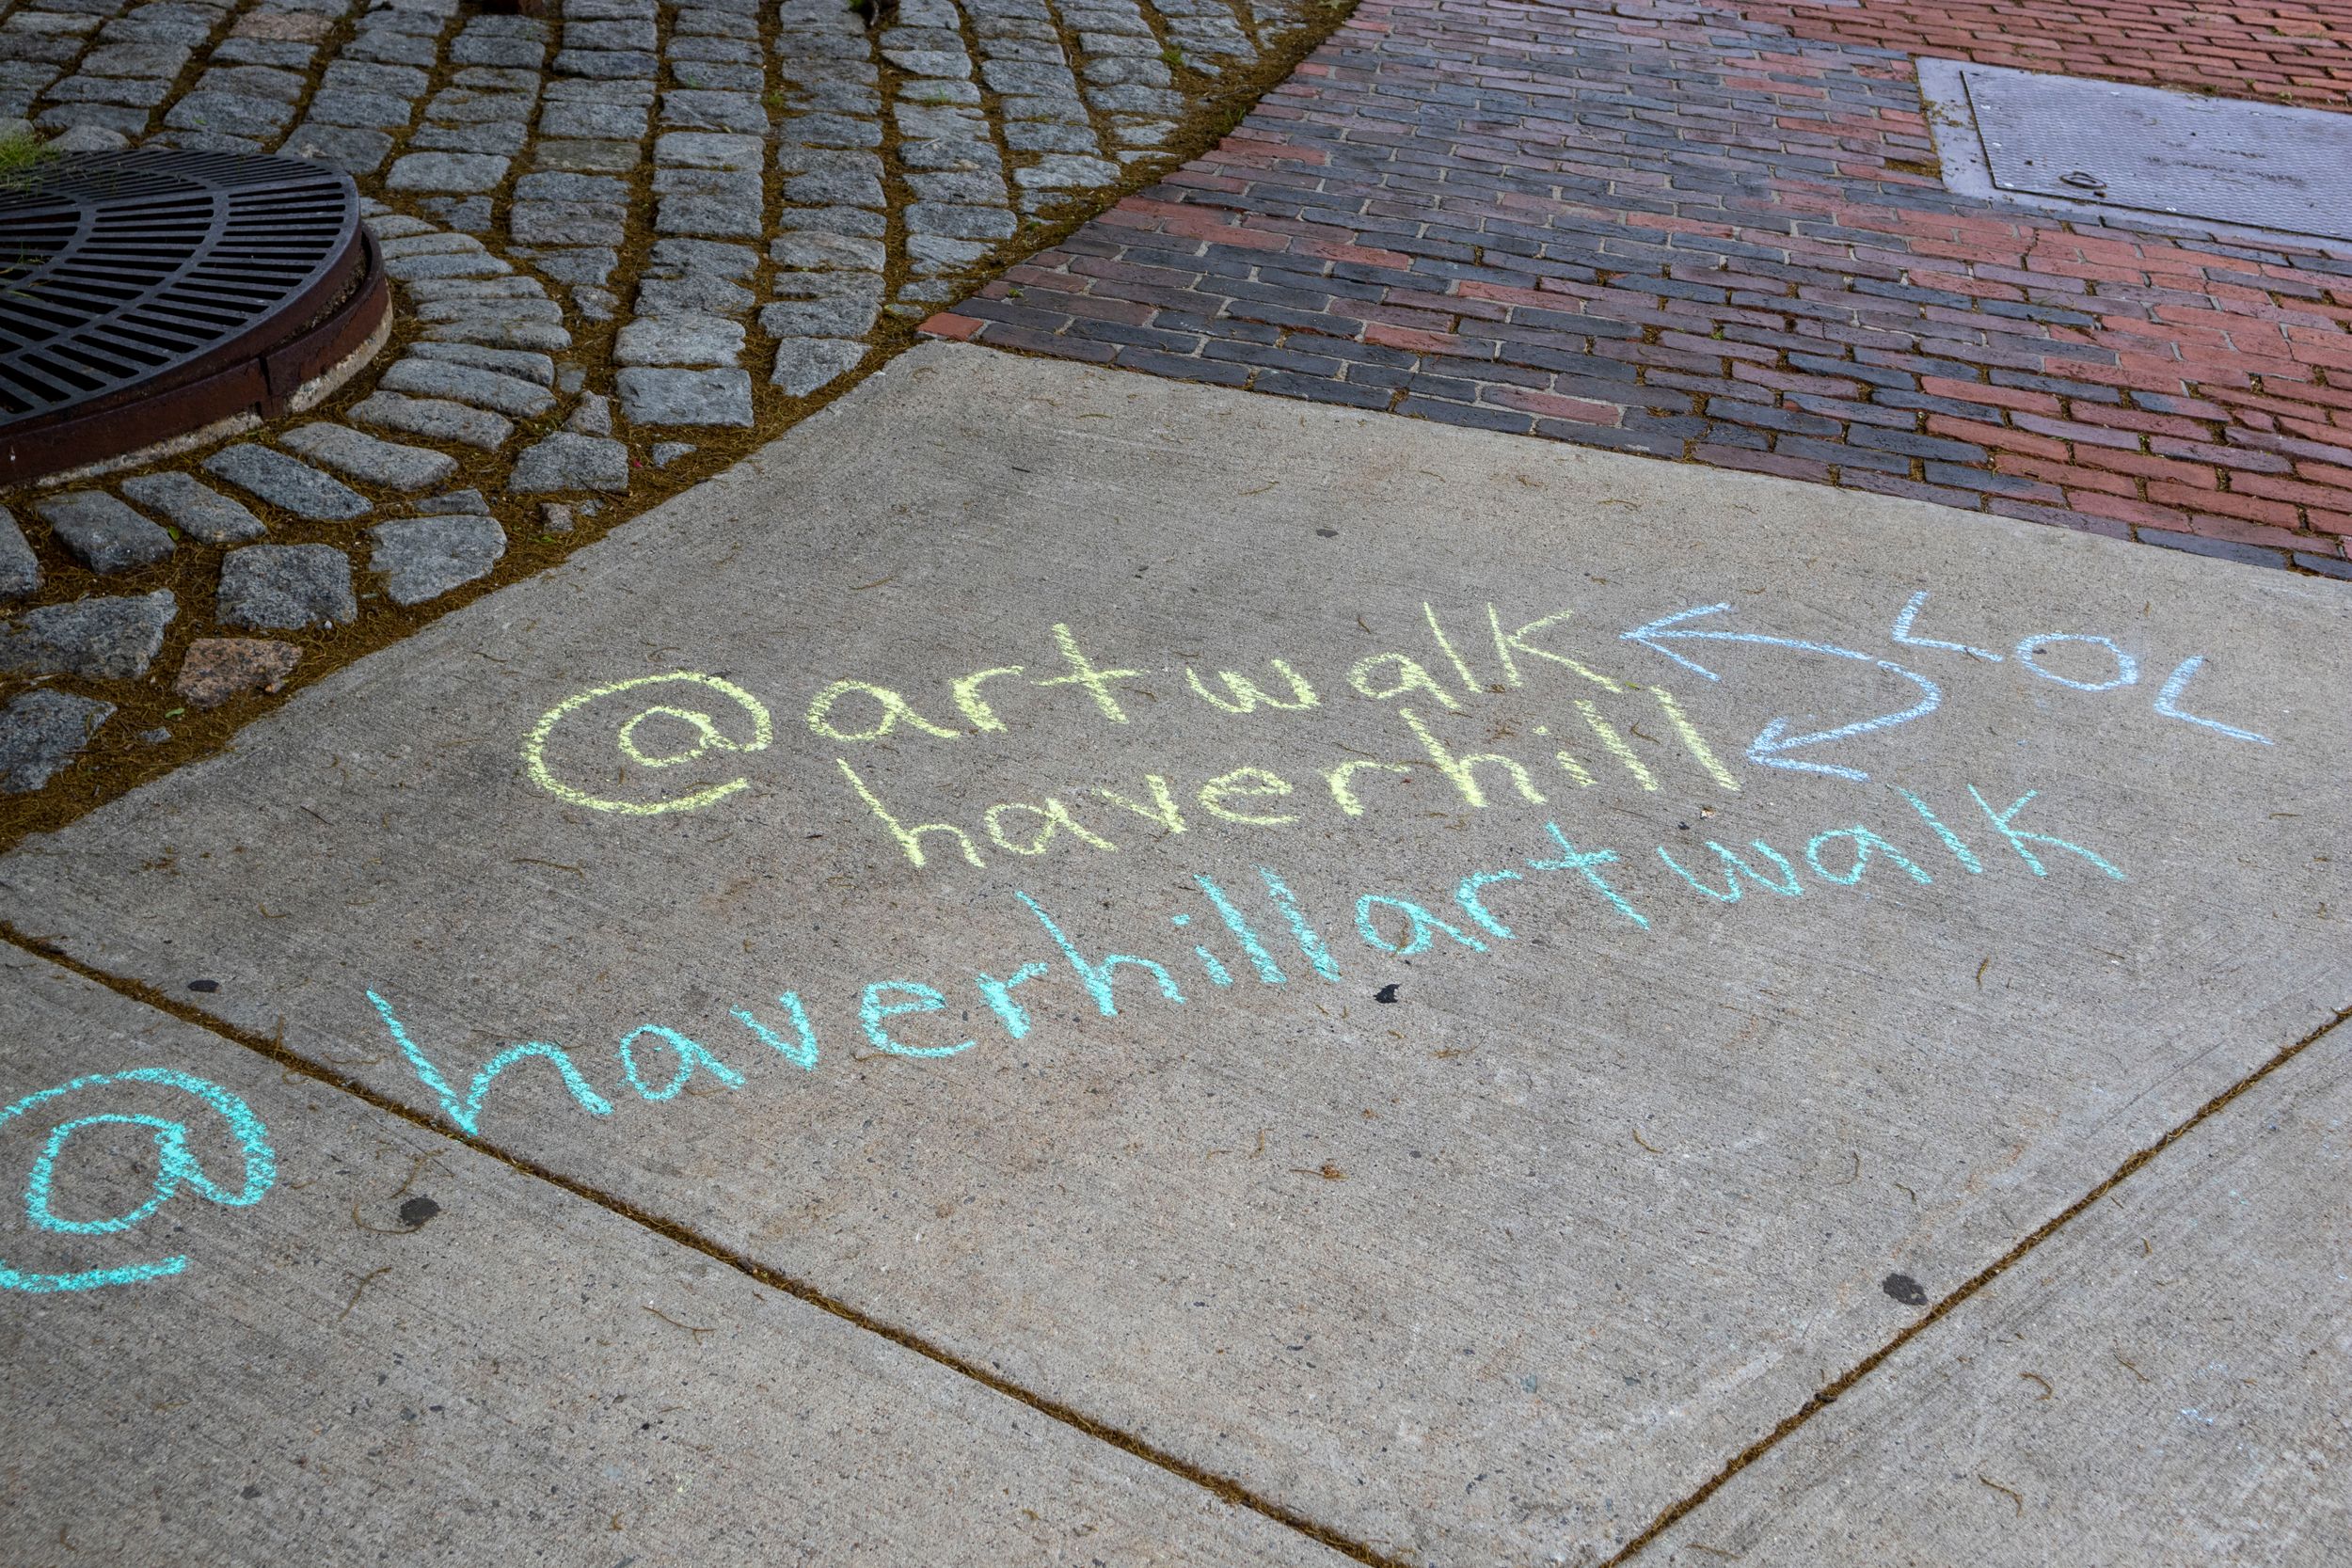 @artwalk LOL
haverhill
@haverhillartwalk